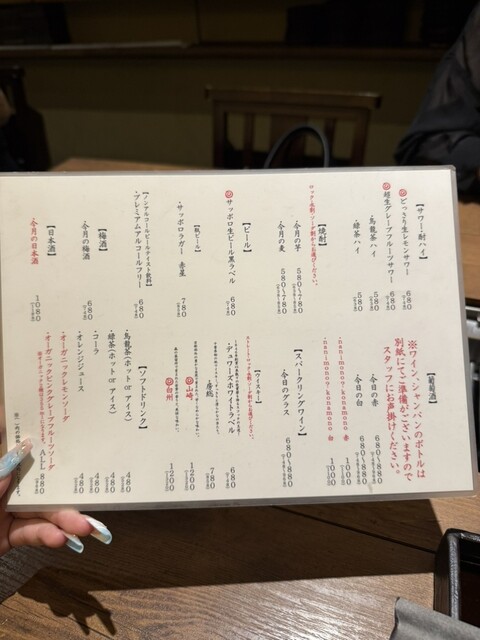 【サワー・酎ハイ】
・どっさり生レモンサワー 680
・超生グレープフルーツサワー 680
・烏龍茶ハイ 580
・緑茶ハイ 580
【焼酎】
ロック・水割・ソーダ割からお選びください。
・今月の芋 580~780
・今月の麦 580~780
【ビール】
・サッポロ生ビール黒ラベル 680
【瓶ビール】
・サッポロラガー 赤星 780
【ノンアルコールビールテイスト飲料】
・プレミアムアルコールフリー 680
【梅酒】
・今月の梅酒 680
【日本酒】
・今月の日本酒 1080
【葡萄酒】
※ワイン・シャンパンのボトルは
別紙にてご準備がございますので
スタッフにお声掛けください。
・今日の赤 680~880
・今日の白 680~880
・nanimono? konamono 赤 1000
・nanimono? konamono 白
【スパークリングワイン】
・今日のグラス 680~880
【ウイスキー】
・デュワーズホワイトラベル 680
・房総 780
・山崎 1200
・白州 1200
【ソフトドリンク】
・烏龍茶(ホット or アイス) 480
・緑茶(ホット or アイス) 480
・コーラ 480
・オレンジジュース 480
・オーガニックレモンソーダ
・オーガニックピンクグレープフルーツソーダ ALL 880